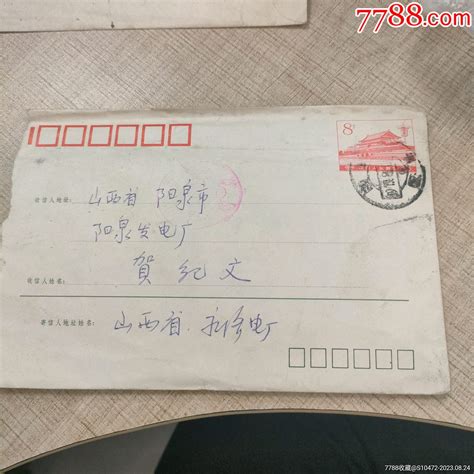 7788.com
8分
收信人地址: 山西省 阳泉市
阳泉发电厂
收信人姓名: 賀纪文
寄信人地址姓名: 山西省 电厂
7788收藏@S10472-2023.08.24